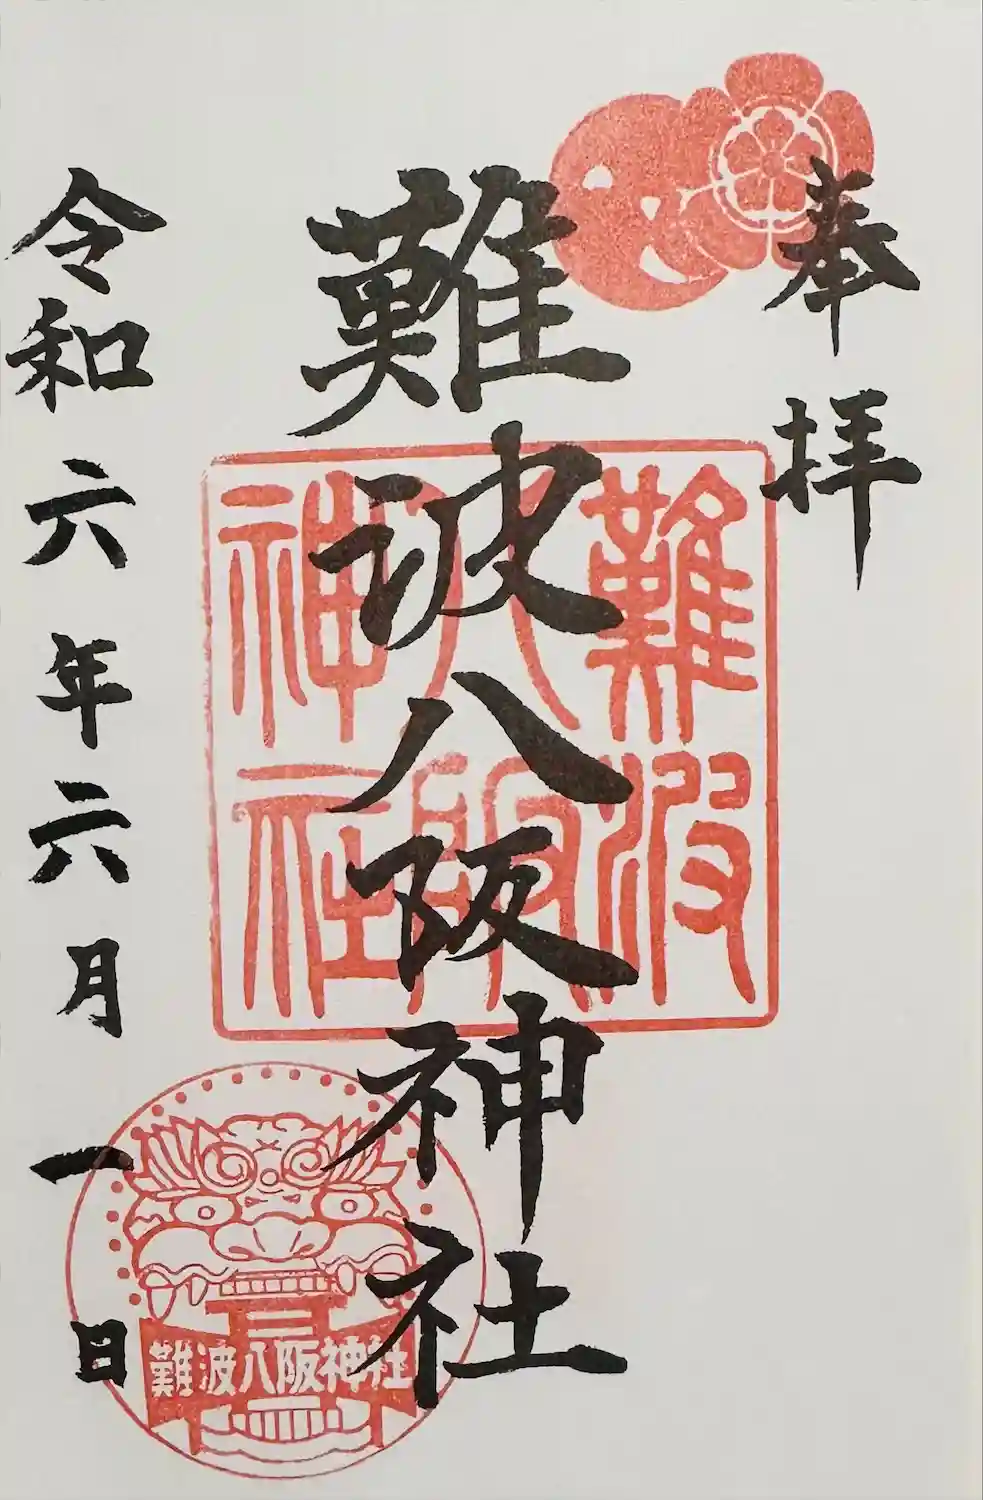 奉拝
難波八阪神社
難波
八阪
神社
令和六年六月一日
難波八阪神社